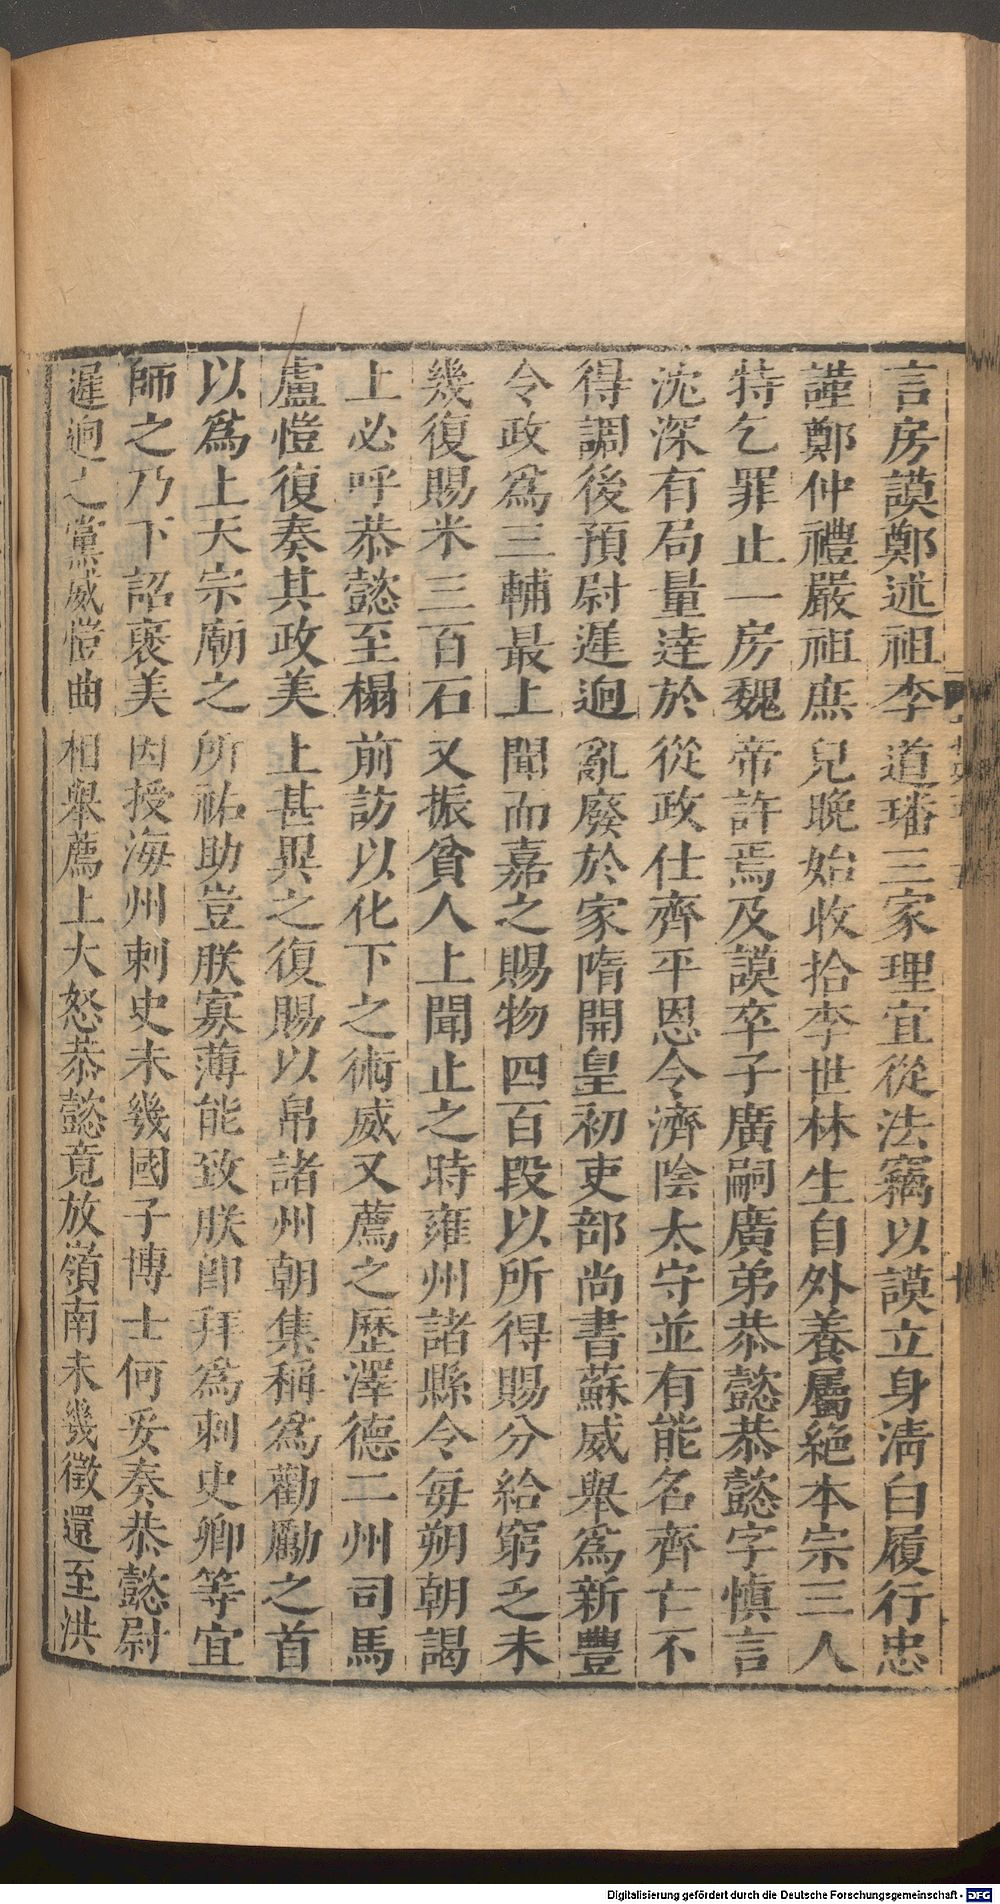 言房謨鄭述祖李道璠三家理宜從法竊以謨立身淸白履行忠
謹鄭仲禮嚴祖庶兒晚始收拾李世林生自外養屬絕本宗三人
特乞罪止一房魏帝許焉及謨卒子廣嗣廣弟恭懿恭懿字愼言
沈深有局量達於從政仕齊平恩令濟陰太守並有能名齊亡不
得調後預尉遲迥亂廢於家隋開皇初吏部尚書蘇威舉爲新豐
令政爲三輔最上聞而嘉之賜物四百段以所得賜分給窮乏未
幾復賜米三百石又振貧人上聞止之時雍州諸縣令每朔朝謁
上必呼恭懿至榻前訪以化下之術威又薦之歷澤德二州司馬
盧愷復奏其政美上甚異之復賜以帛諸州朝集稱爲勸勵之首
以爲上天宗廟之所祐助豈朕寡薄能致朕卽拜爲刺史卿等宜
師之乃下詔褒美因授海州刺史未幾國子博士何妥奏恭懿尉
遲迥之黨威愷曲相舉薦上大怒恭懿竟放嶺南未幾徵還至洪
Digitalisierung gefördert durch die Deutsche Forschungsgemeinschaft - DFG